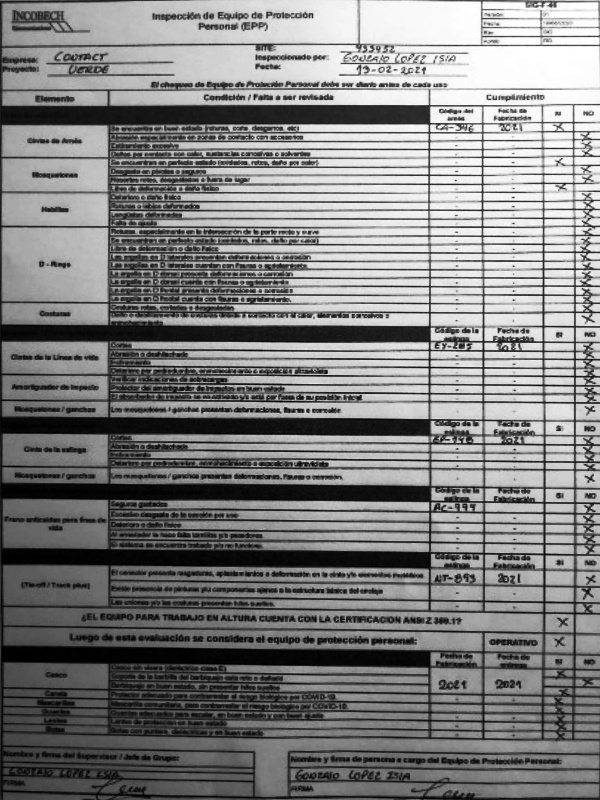 INCOBECH
Inspección de Equipo de Protección
Personal (EPP)
SIG-F-46
Fecha:
Empresa: CONTACT
Proyecto: VERDE
SITE: 933452
Inspeccionado por: GONZALO LOPEZ ISLA
Fecha: 19-02-2021
El chequeo de Equipo de Protección Personal debe ser diario antes de cada uso
Elemento Condición / Falta a ser revisada Cumplimiento
Código del arnés Fecha de Fabricación SI NO
Cintas de Arnés
Se encuentra en buen estado (roturas, corte, desgarros, etc) CA-346 2021 X
Abrasión especialmente en zonas de contacto con accesorios - - X
Estiramiento excesivo - - X
Daños por contacto con calor, sustancias corrosivas o solventes - - X
Mosquetones
Se encuentran en perfecto estado (oxidados, rotos, daño por calor) - - X
Desgaste en pivotes o seguros - - X
Resortes rotos, desgastados o fuera de lugar - - X
Libre de deformación o daño físico - - X
Hebillas
Deterioro o daño físico - - X
Roturas o labios deformados - - X
Lengüetas deformadas - - X
Falta de ajuste - - X
D - Rings
Roturas, especialmente en la intersección de la parte recta y curva - - X
Se encuentran en perfecto estado (oxidados, rotos, daño por calor) - - X
Libre de deformación o daño físico - - X
Las argollas en D laterales presentan deformaciones o corrosión - - X
Las argollas en D laterales cuentan con fisuras o agrietamiento. - - X
La argolla en D dorsal presenta deformaciones o corrosión - - X
La argolla en D dorsal cuenta con fisuras o agrietamiento - - X
La argolla en D frontal presenta deformaciones o corrosión - - X
La argolla en D frontal cuenta con fisuras o agrietamiento. - - X
Costuras
Costuras rotas, cortadas o desgastadas - - X
Código de la eslinga Fecha de Fabricación SI NO
Cintas de la Línea de vida
Cortes EY-285 2021 X
Abrasión o deshilachado - - X
Estiramiento - - X
Deterioro por podredumbre, enmohecimiento o exposición ultravioleta - - X
Amortiguador de impacto
Verificar indicaciones de sobrecargas - - X
Protector del amortiguador de impactos en buen estado - - X
El absorbedor de impacto se encuentra y/o está por fuera de su posición inicial - - X
Mosquetones / ganchos Los mosquetones / ganchos presentan deformaciones, fisuras o corrosión - - X
Código de la eslinga Fecha de Fabricación SI NO
Cinta de la eslinga
Cortes EP-148 2021 X
Abrasión o deshilachado - - X
Estiramiento - - X
Deterioro por podredumbre, enmohecimiento o exposición ultravioleta - - X
Mosquetones / ganchos Los mosquetones / ganchos presentan deformaciones, fisuras o corrosión. - - X
Código de la eslinga Fecha de Fabricación SI NO
Freno anticaídas para línea de vida
Seguros gastados AC-999 - X
Excesivo desgaste de la sección por uso - - X
Deterioro o daño físico - - X
Al arrestador le hace falta tornillos y/o pasadores - - X
El sistema se encuentra trabado y/o no funciona. - - X
Código de la eslinga Fecha de Fabricación SI NO
(Tie-off / Track plus)
El conector presenta rasgaduras, aplastamientos o deformación en la cinta y/o elementos metálicos NT-893 2021 X
Existe presencia de pinturas y/o componentes ajenos a la estructura básica del anclaje - - X
Las uniones y/o las costuras presentan hilos sueltos. - - X
¿EL EQUIPO PARA TRABAJO EN ALTURA CUENTA CON LA CERTIFICACION ANSI Z 359.1? X
Luego de esta evaluación se considera el equipo de protección personal: OPERATIVO X
Fecha de Fabricación Fecha de entrega SI NO
Casco
Casco sin visera (dieléctrico clase E)
Soporte de la barbilla del barbiquejo esta roto o dañado
Barbiquejo en buen estado, sin presentar hilos sueltos
2021 2021
Careta Protector adecuado para contrarrestar el riesgo biológico por COVID-19.
Mascarillas Mascarilla comunitaria, para contrarrestar el riesgo biológico por COVID-19.
Guantes Guantes adecuados para escalar, en buen estado y con buen ajuste
Lentes Lentes de protección en buen estado
Botas Botas con puntera, dieléctricas y en buen estado
Nombre y firma del Supervisor / Jefe de Grupo:
GONZALO LOPEZ ISLA
FIRMA
Nombre y firma de persona a cargo del Equipo de Protección Personal:
GONZALO LOPEZ ISLA
FIRMA